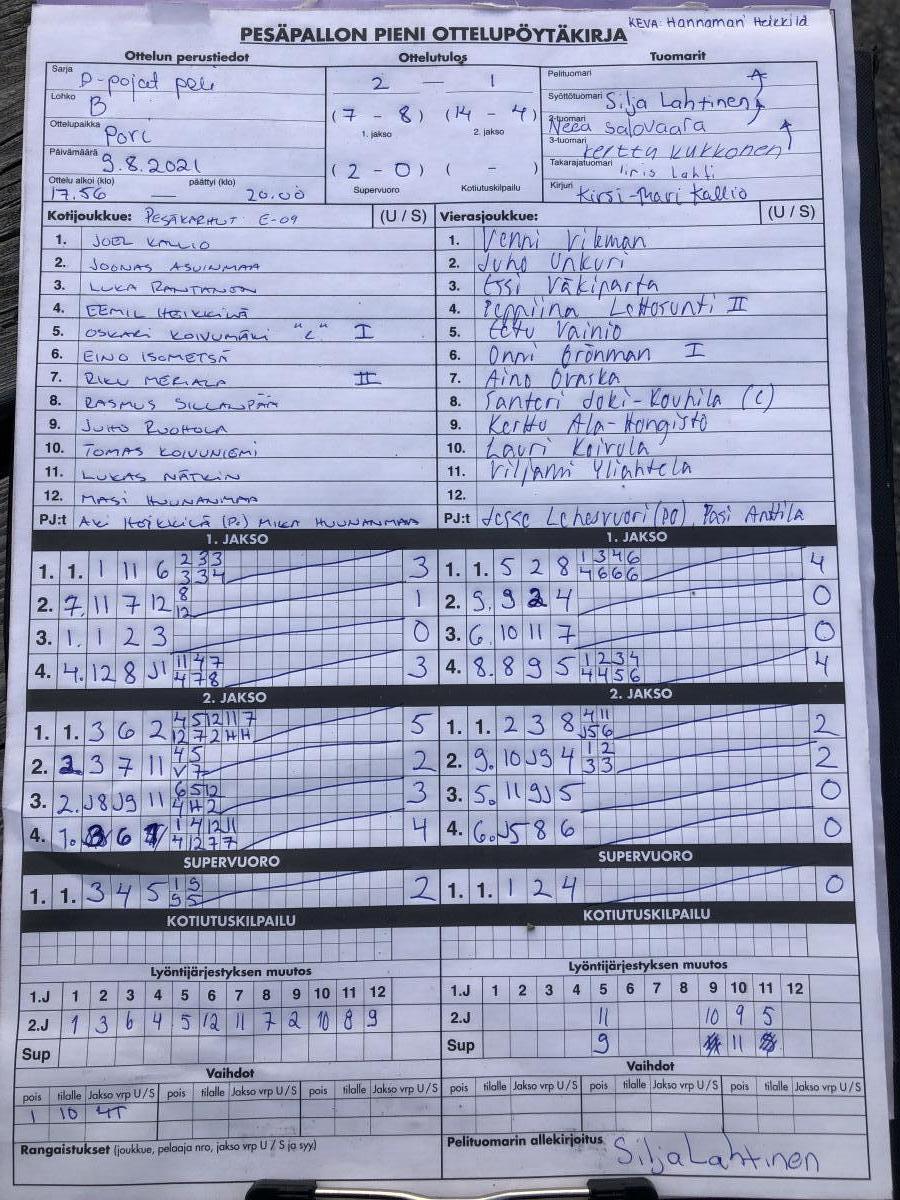 KEVA: Hannamari Heikkilä
PESÄPALLON PIENI OTTELUPÖYTÄKIRJA
Ottelun perustiedot
Sarja D-pojat peli
Lohko B
Ottelupaikka Pori
Päivämäärä 9.8.2021
Ottelu alkoi (klo) päättyi (klo)
17.56 — 20.00
Ottelutulos
2 — 1
(7 - 8) (14 - 4)
1. jakso 2. jakso
(2 - 0) ( - )
Supervuoro Kotiutuskilpailu
Tuomarit
Pelituomari
Syöttötuomari Silja Lahtinen
2-tuomari Neea Salovaara
3-tuomari Kerttu Kukkonen
Takarajatuomari Iiris Lahti
Kirjuri Kirsi-Mari Kallio
Kotijoukkue: PESÄKARHUT E-09 (U / S)
1. JOEL KALLIO
2. JOONAS ASUINMAA
3. LUKA RANTANEN
4. EEMIL HEIKKILÄ
5. OSKARI KOIVUMÄKI "C" I
6. EINO ISOMETSÄ
7. RIKU MERIALA II
8. RASMUS SILLANPÄÄ
9. JUHO RUOHOLA
10. TOMAS KOIVUNIEMI
11. LUKAS NÄTKIN
12. MASI HUUNANMAA
PJ:t AKI HEIKKILÄ (PO) MIKA HUUNANMAA
Vierasjoukkue: (U / S)
1. Venni Vikman
2. Juho Unkuri
3. Essi Väkiparta
4. Peppiina Lehtosunti II
5. Eetu Vainio
6. Onni Grönman I
7. Aino Oraska
8. Santeri Joki-Kouhila (C)
9. Kerttu Ala-Hongisto
10. Lauri Koivula
11. Viljami Yliahtela
12.
PJ:t Jesse Lehesvuori (PO), Pasi Anttila
1. JAKSO
1. 1. 1 11 6 2 3 3 3
3 3 4
2. 7. 11 7 12 8 1
12
3. 1. 1 2 3 0
4. 4. 12 8 J1 11 4 7 3
4 7 8
1. JAKSO
1. 1. 5 2 8 1 3 4 6 4
4 6 6 6
2. 9. 9 2 4 0
3. 6. 10 11 7 0
4. 8. 8 9 5 1 2 3 4 4
4 4 5 6
2. JAKSO
1. 1. 3 6 2 4 5 12 11 7 5
12 7 2 H H
2. 2 3 7 11 4 5 2
V 7
3. 2. J8 J9 11 6 5 12 3
4 H 2
4. 1. 3 6 1 4 12 11 4
4 12 7 7
2. JAKSO
1. 1. 2 3 8 4 11 2
J5 6
2. 9. 10 J9 4 1 2 2
3 3
3. 5. 11 9 J5 0
4. 6. J5 8 6 0
SUPERVUORO
1. 1. 3 4 5 1 9 2
9 5
SUPERVUORO
1. 1. 1 2 4 0
KOTIUTUSKILPAILU
KOTIUTUSKILPAILU
Lyöntijärjestyksen muutos
1.J 1 2 3 4 5 6 7 8 9 10 11 12
2.J 1 3 6 4 5 12 11 7 2 10 8 9
Sup
Lyöntijärjestyksen muutos
1.J 1 2 3 4 5 6 7 8 9 10 11 12
2.J 11 10 9 5
Sup 9 11
Vaihdot
pois tilalle Jakso vrp U / S pois tilalle Jakso vrp U / S pois tilalle Jakso vrp U / S
1 10 4T
Vaihdot
pois tilalle Jakso vrp U / S pois tilalle Jakso vrp U / S pois tilalle Jakso vrp U / S
Rangaistukset (joukkue, pelaaja nro, jakso vrp U / S ja syy)
Pelituomarin allekirjoitus Silja Lahtinen